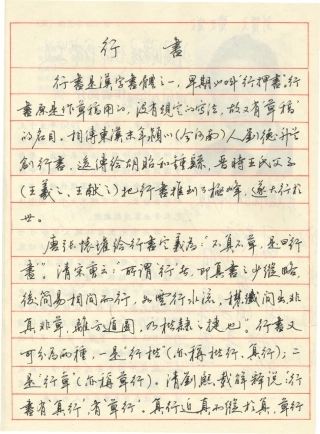 行書
行書是漢字書體之一,早期叫作"行押書"行
書原是作草稿用的,沒有規定的寫法,故又有草稿
的名目。相傳東漢末年潁川(今河南)人劉德升始
創行書,送傳給胡昭和鍾繇,晉時王氏父子
(王羲之、王獻之)把行書推到了極峰,遂大行於
世。
唐張懷瓘給行書定義為:"不真不草,是曰行
書"。清宋曹云:"所謂'行'者,即真書之少縱略
後簡易相間而行,如雲行水流,穠纖間出非
真非草,離方遁圓,乃楷隸之捷也"。行書又
可分為兩種,一是"行楷"(亦稱楷行,真行);二
是"行草"(亦稱草行)。清劉熙載解釋說:"行
書有真行,有草行"。真行近真而縱於真,草行